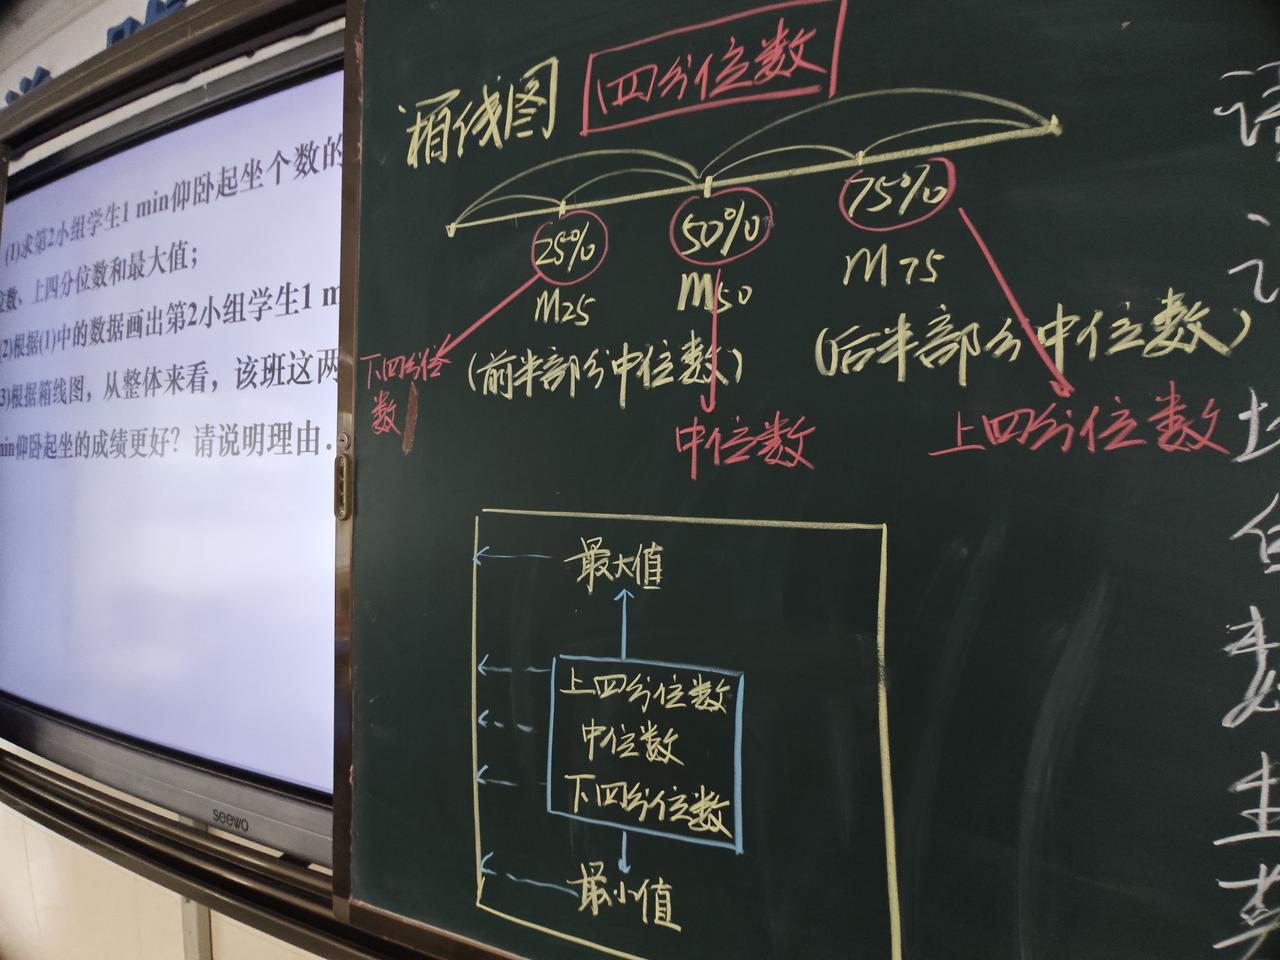 (1)求第2小组学生1 min仰卧起坐个数的
位数、上四分位数和最大值；
(2)根据(1)中的数据画出第2小组学生1 m
(3)根据箱线图，从整体来看，该班这两
min仰卧起坐的成绩更好？请说明理由.
seewo
箱线图 四分位数
25% 50% 75%
M25 M50 M75
(前半部分中位数) (后半部分中位数)
下四分位
数
中位数 上四分位数
最大值
上四分位数
中位数
下四分位数
最小值